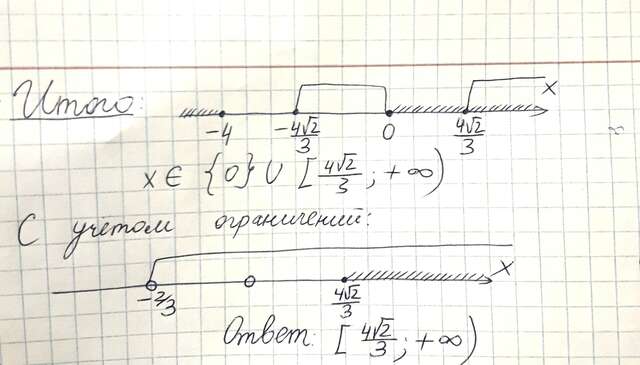 Итого:
x
-4 -4√2/3 0 4√2/3
x ∈ {0} ∪ [4√2/3; +∞)
С учетом ограничений:
x
-2/3 4√2/3
Ответ: [4√2/3; +∞)